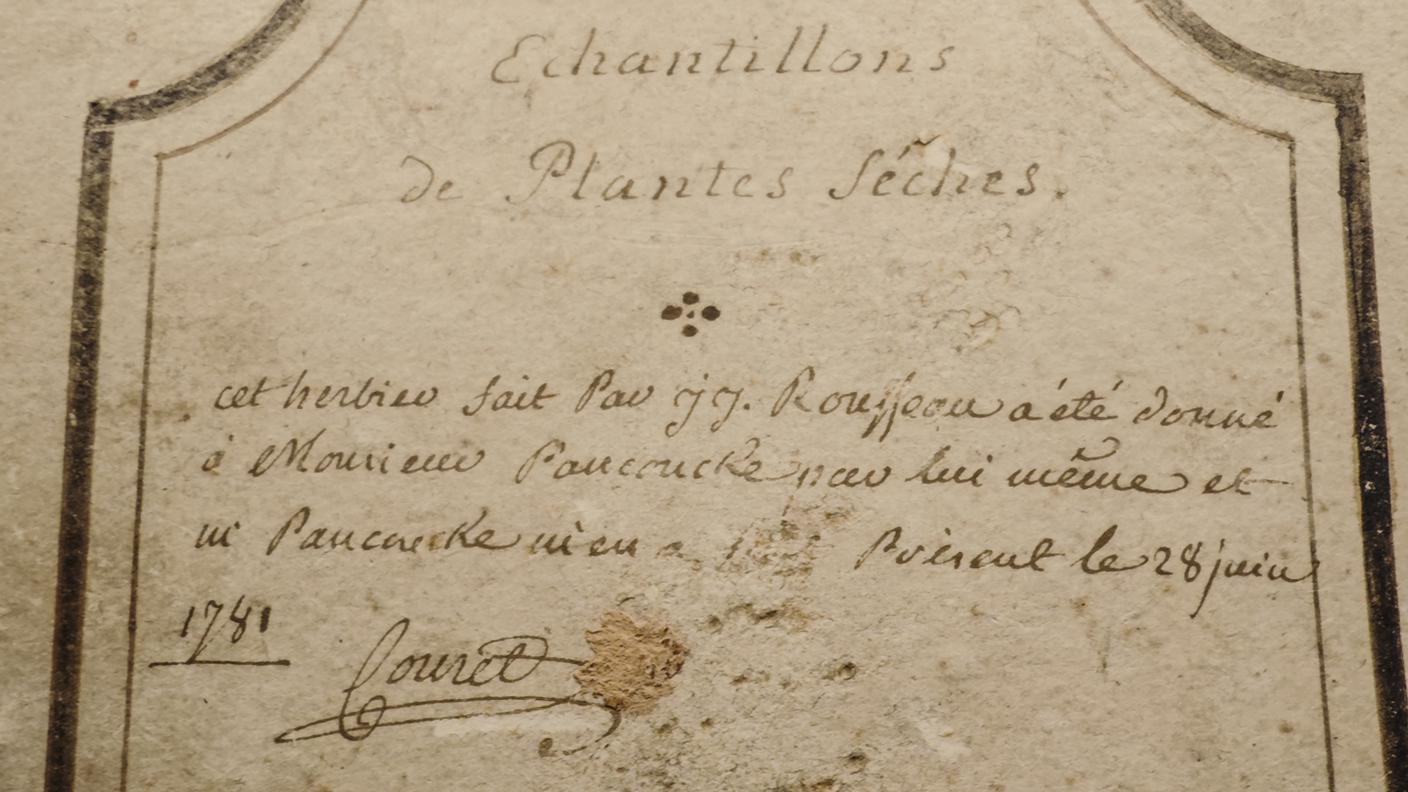 Echantillons
de Plantes Séches.
cet herbier fait Par jj. Rousseau a été donné
à Monsieur Pancoucke par lui même et
m Pancoucke m'en a Présent le 28 juin
1781
Couret